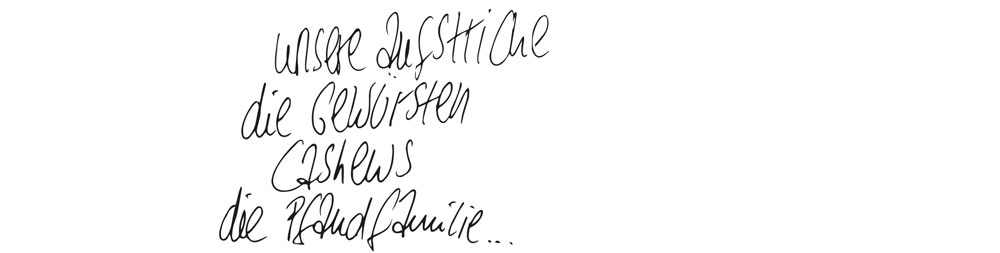 unsere Aufstriche
die Gewürsten
Cashews
die Pfandfamilie...